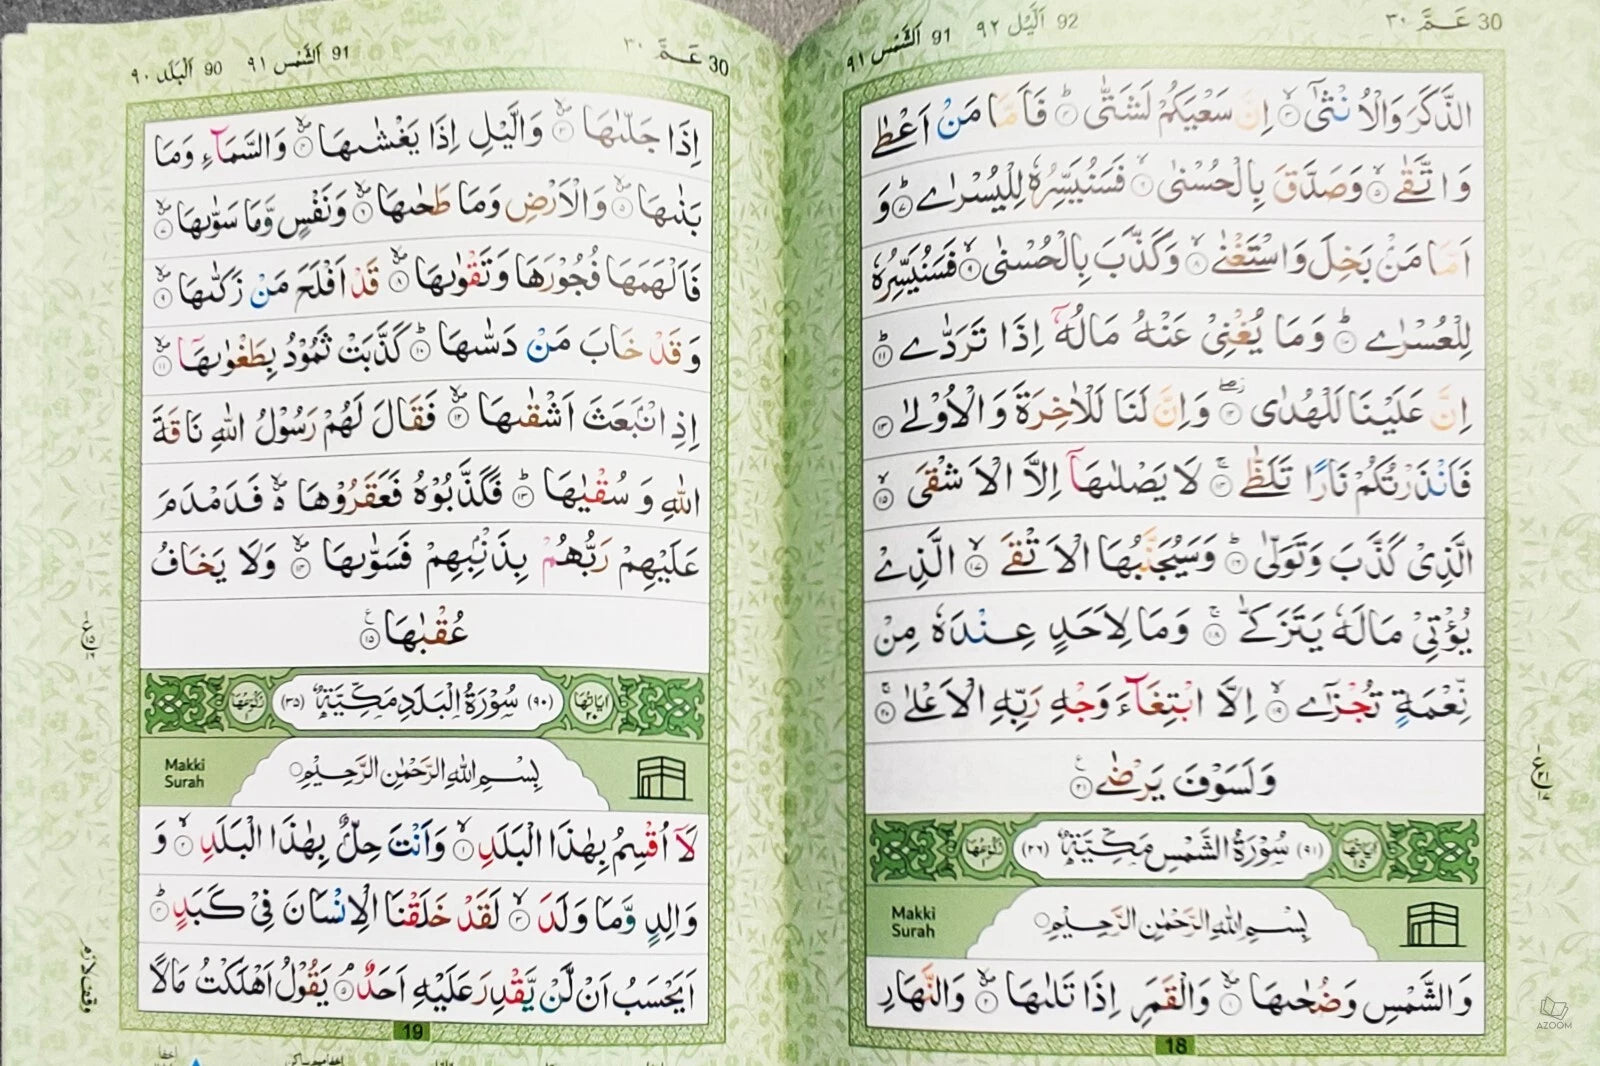 30 عَمَّ ٣٠
92 اَلَّيْل ٩٢
91 اَلشَّمْس ٩١
الذَّكَرَ وَالْاُنْثٰىٓ ۙ۝٣ اِنَّ سَعْيَكُمْ لَشَتّٰى ؕ۝٤ فَاَمَّا مَنْ اَعْطٰى
وَاتَّقٰى ۙ۝٥ وَصَدَّقَ بِالْحُسْنٰى ۙ۝٦ فَسَنُيَسِّرُهٗ لِلْيُسْرٰى ؕ۝٧ وَ
اَمَّا مَنْۢ بَخِلَ وَاسْتَغْنٰى ۙ۝٨ وَكَذَّبَ بِالْحُسْنٰى ۙ۝٩ فَسَنُيَسِّرُهٗ
لِلْعُسْرٰى ؕ۝١٠ وَمَا يُغْنِىْ عَنْهُ مَالُهٗٓ اِذَا تَرَدّٰى ؕ۝١١
اِنَّ عَلَيْنَا لَلْهُدٰى ۖ۝١٢ وَاِنَّ لَنَا لَلْاٰخِرَةَ وَالْاُوْلٰى ۝١٣
فَاَنْذَرْتُكُمْ نَارًا تَلَظّٰى ۚ۝١٤ لَا يَصْلٰىهَآ اِلَّا الْاَشْقَى ۙ۝١٥
الَّذِىْ كَذَّبَ وَتَوَلّٰى ؕ۝١٦ وَسَيُجَنَّبُهَا الْاَتْقَى ۙ۝١٧ الَّذِىْ
يُؤْتِىْ مَالَهٗ يَتَزَكّٰى ۚ۝١٨ وَمَا لِاَحَدٍ عِنْدَهٗ مِنْ
نِّعْمَةٍ تُجْزٰٓى ۙ۝١٩ اِلَّا ابْتِغَآءَ وَجْهِ رَبِّهِ الْاَعْلٰى ۚ۝٢٠
وَلَسَوْفَ يَرْضٰى ۝٢١
اٰيَاتُهَا ١٥ (٩١) سُوْرَةُ الشَّمْسِ مَكِّيَّةٌ (٢٦) رُكُوْعُهَا
Makki
Surah
بِسْمِ اللّٰهِ الرَّحْمٰنِ الرَّحِيْمِ
وَالشَّمْسِ وَضُحٰىهَا ۙ۝١ وَالْقَمَرِ اِذَا تَلٰىهَا ۙ۝٢ وَالنَّهَارِ
18
AZOOM
30 عَمَّ ٣٠
91 اَلشَّمْس ٩١
90 اَلْبَلَد ٩٠
اِذَا جَلّٰىهَا ۙ۝٣ وَالَّيْلِ اِذَا يَغْشٰىهَا ۙ۝٤ وَالسَّمَآءِ وَمَا
بَنٰىهَا ۙ۝٥ وَالْاَرْضِ وَمَا طَحٰىهَا ۙ۝٦ وَنَفْسٍ وَّمَا سَوّٰىهَا ۙ۝٧
فَاَلْهَمَهَا فُجُوْرَهَا وَتَقْوٰىهَا ۙ۝٨ قَدْ اَفْلَحَ مَنْ زَكّٰىهَا ۙ۝٩
وَقَدْ خَابَ مَنْ دَسّٰىهَا ؕ۝١٠ كَذَّبَتْ ثَمُوْدُ بِطَغْوٰىهَآ ۙ۝١١
اِذِ انْۢبَعَثَ اَشْقٰىهَا ۙ۝١٢ فَقَالَ لَهُمْ رَسُوْلُ اللّٰهِ نَاقَةَ
اللّٰهِ وَسُقْيٰهَا ؕ۝١٣ فَكَذَّبُوْهُ فَعَقَرُوْهَا ۙ فَدَمْدَمَ
عَلَيْهِمْ رَبُّهُمْ بِذَنْۢبِهِمْ فَسَوّٰىهَا ۙ۝١٤ وَلَا يَخَافُ
عُقْبٰهَا ۝١٥
اٰيَاتُهَا ٢٠ (٩٠) سُوْرَةُ الْبَلَدِ مَكِّيَّةٌ (٣٥) رُكُوْعُهَا
Makki
Surah
بِسْمِ اللّٰهِ الرَّحْمٰنِ الرَّحِيْمِ
لَآ اُقْسِمُ بِهٰذَا الْبَلَدِ ۙ۝١ وَاَنْتَ حِلٌّۢ بِهٰذَا الْبَلَدِ ۙ۝٢ وَ
وَالِدٍ وَّمَا وَلَدَ ۙ۝٣ لَقَدْ خَلَقْنَا الْاِنْسَانَ فِىْ كَبَدٍ ؕ۝٤
اَيَحْسَبُ اَنْ لَّنْ يَّقْدِرَ عَلَيْهِ اَحَدٌ ۘ۝٥ يَقُوْلُ اَهْلَكْتُ مَالًا
19